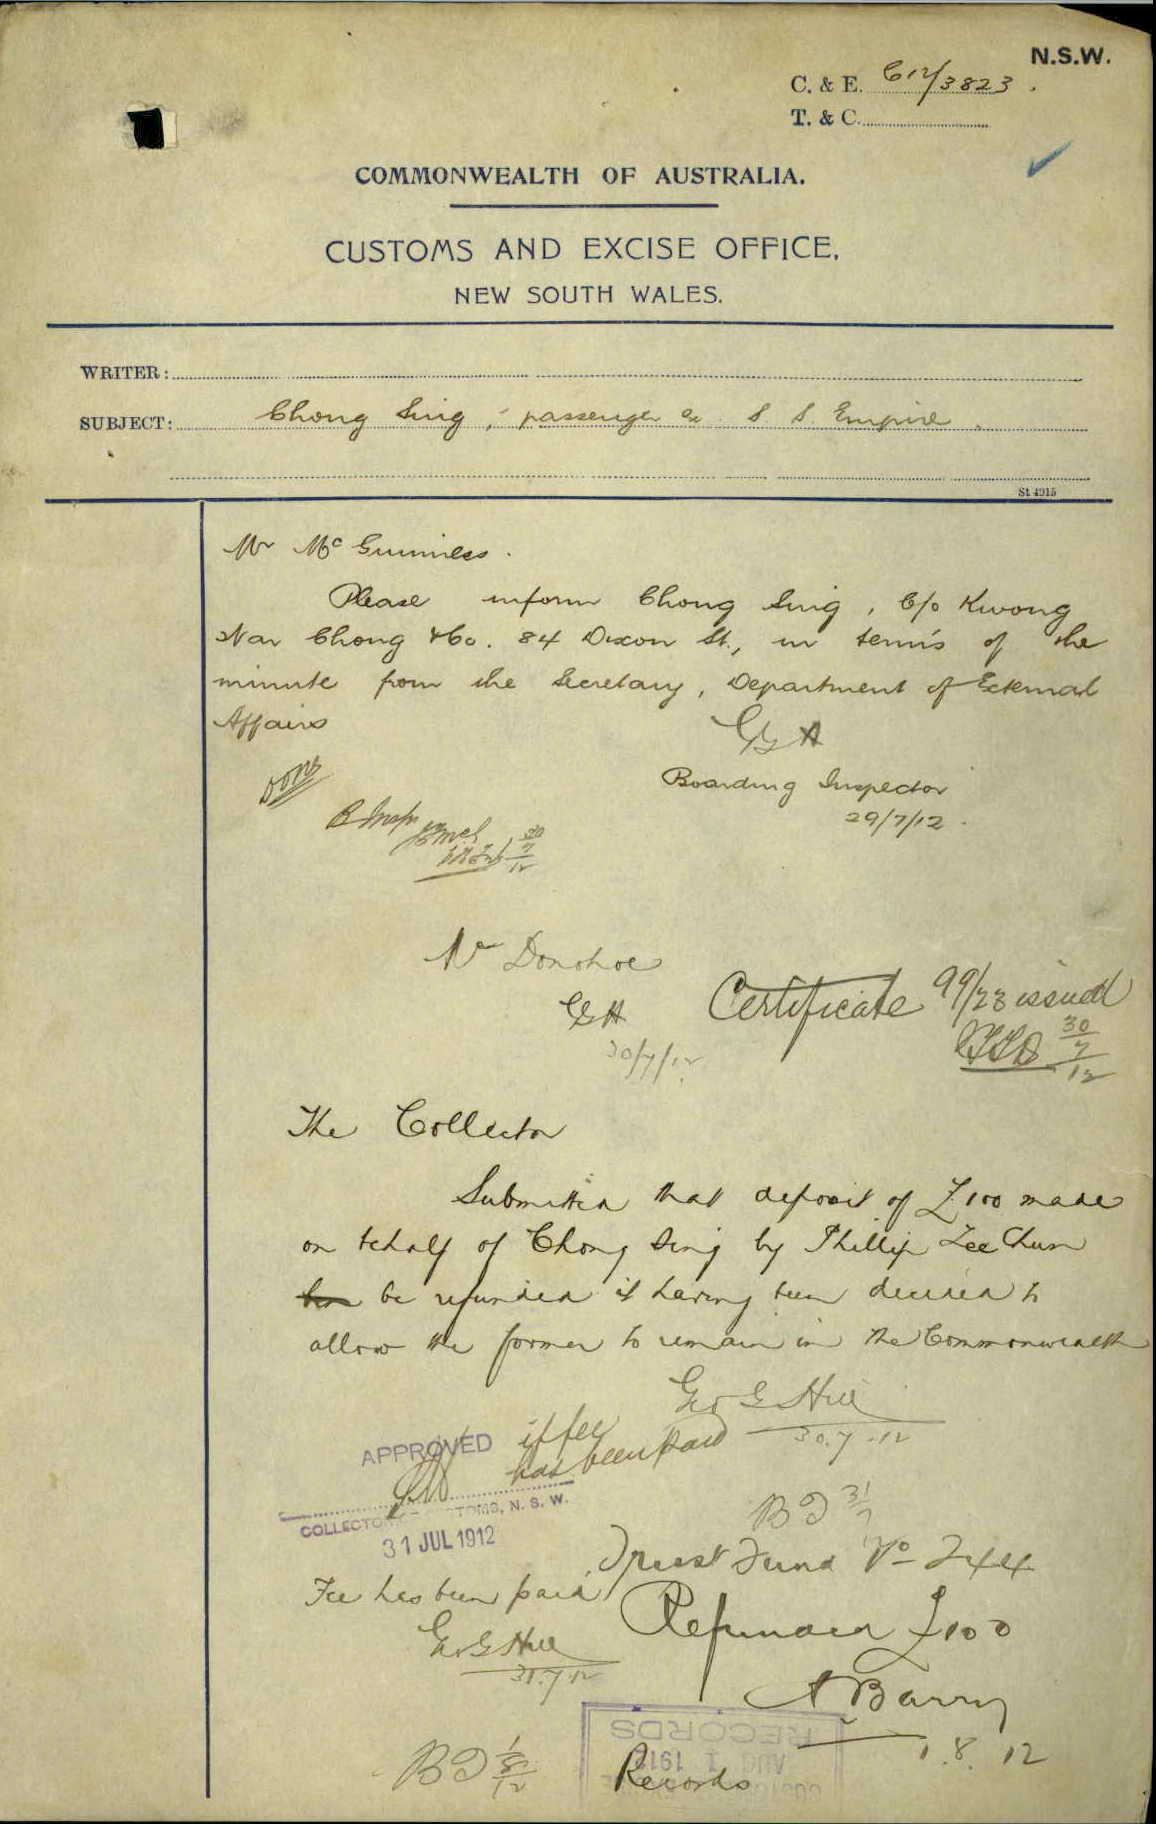 N.S.W.
C. & E. C12/3823.
T. & C.
COMMONWEALTH OF AUSTRALIA.
CUSTOMS AND EXCISE OFFICE,
NEW SOUTH WALES.
WRITER:
SUBJECT: Chong Sing, passenger ex S. S. Empire.
St 4915
Mr McGuinness.
Please inform Chong Sing, C/o Kwong
War Chong & Co. 84 Dixon St., in terms of the
minute from the Secretary, Department of External
Affairs
GGH
Boarding Inspector
29/7/12.
Done
B. Inspr
30/7/12
Mr Donohoe
GGH
30/7/12
Certificate 99/23 issued
30/7/12
The Collector
Submitted that deposit of £100 made
on behalf of Chong Sing by Phillip Lee Chun
be refunded it having been decided to
allow the former to remain in the Commonwealth
Geo G Hill
30.7.12
APPROVED if fee
has been paid
COLLECTOR OF CUSTOMS, N. S. W.
31 JUL 1912
BD 31/7
Trust Fund No 244
Fee has been paid
Geo G Hill
31.7.12
Refunded £100
A Barry
1.8.12
RECORDS
AUG 1 1912
BD 1/8/12
Records